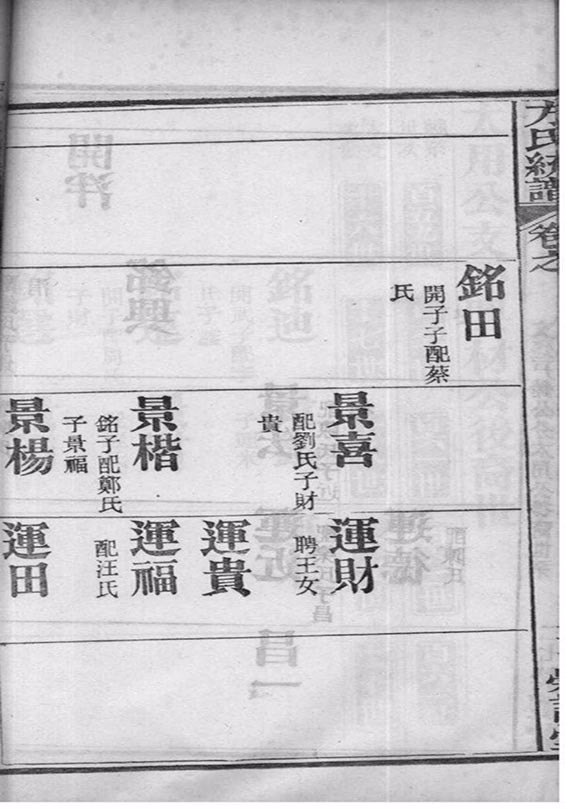 方氏統譜
卷之
銘田
開子子配蔡
氏
景喜
配劉氏子財
貴
景楷
銘子配鄭氏
子景福
景楊
運財
聘王女
運貴
運福
配汪氏
運田